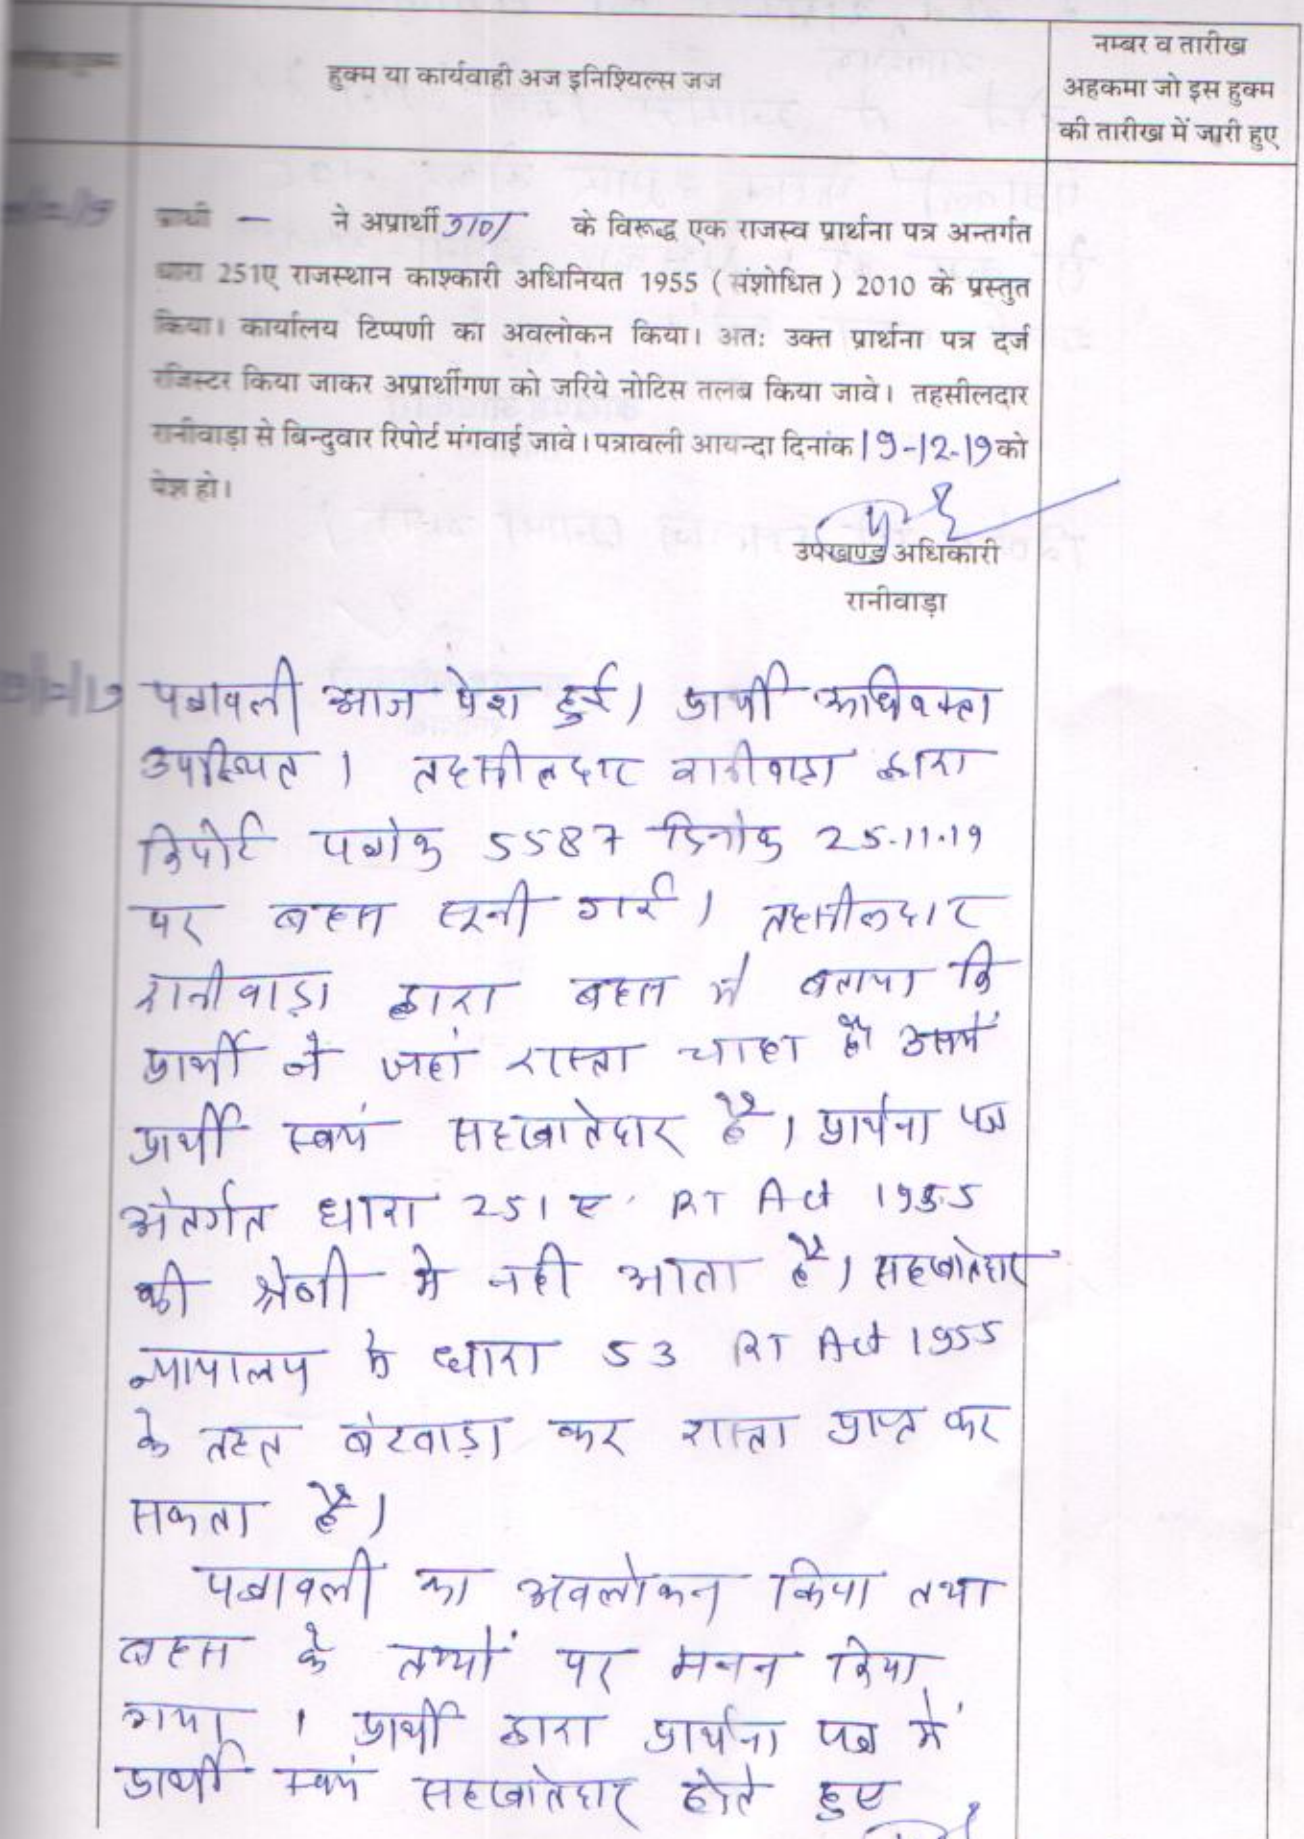 हुक्म या कार्यवाही अज इनिश्यिल्स जज
नम्बर व तारीख
अहकमा जो इस हुक्म
की तारीख में जारी हुए
प्रार्थी — ने अप्रार्थी के विरूद्ध एक राजस्व प्रार्थना पत्र अन्तर्गत
धारा 251ए राजस्थान काश्कारी अधिनियत 1955 ( संशोधित ) 2010 के प्रस्तुत
किया। कार्यालय टिप्पणी का अवलोकन किया। अतः उक्त प्रार्थना पत्र दर्ज
रजिस्टर किया जाकर अप्रार्थीगण को जरिये नोटिस तलब किया जावे। तहसीलदार
रानीवाड़ा से बिन्दुवार रिपोर्ट मंगवाई जावे। पत्रावली आयन्दा दिनांक 19-12-19 को
पेश हो।
उपखण्ड अधिकारी
रानीवाड़ा
पत्रावली आज पेश हुई। प्रार्थी अधिवक्ता
उपस्थित। तहसीलदार रानीवाड़ा द्वारा
रिपोर्ट पत्रांक 5587 दिनांक 25.11.19
पर बहस सूनी गई। तहसीलदार
रानीवाड़ा द्वारा बहस में बताया कि
प्रार्थी ने जहां रास्ता चाहा है उसमें
प्रार्थी स्वयं सहखातेदार है। प्रार्थना पत्र
अंतर्गत धारा 251ए RT Act 1955
की श्रेणी में नही आता है। सहखातेदार
न्यायालय के धारा 53 RT Act 1955
के तहत बंटवाड़ा कर रास्ता प्राप्त कर
सकता है।
पत्रावली का अवलोकन किया तथा
बहस के तथ्यों पर मनन किया
गया। प्रार्थी द्वारा प्रार्थना पत्र में
प्रार्थी स्वयं सहखातेदार होते हुए